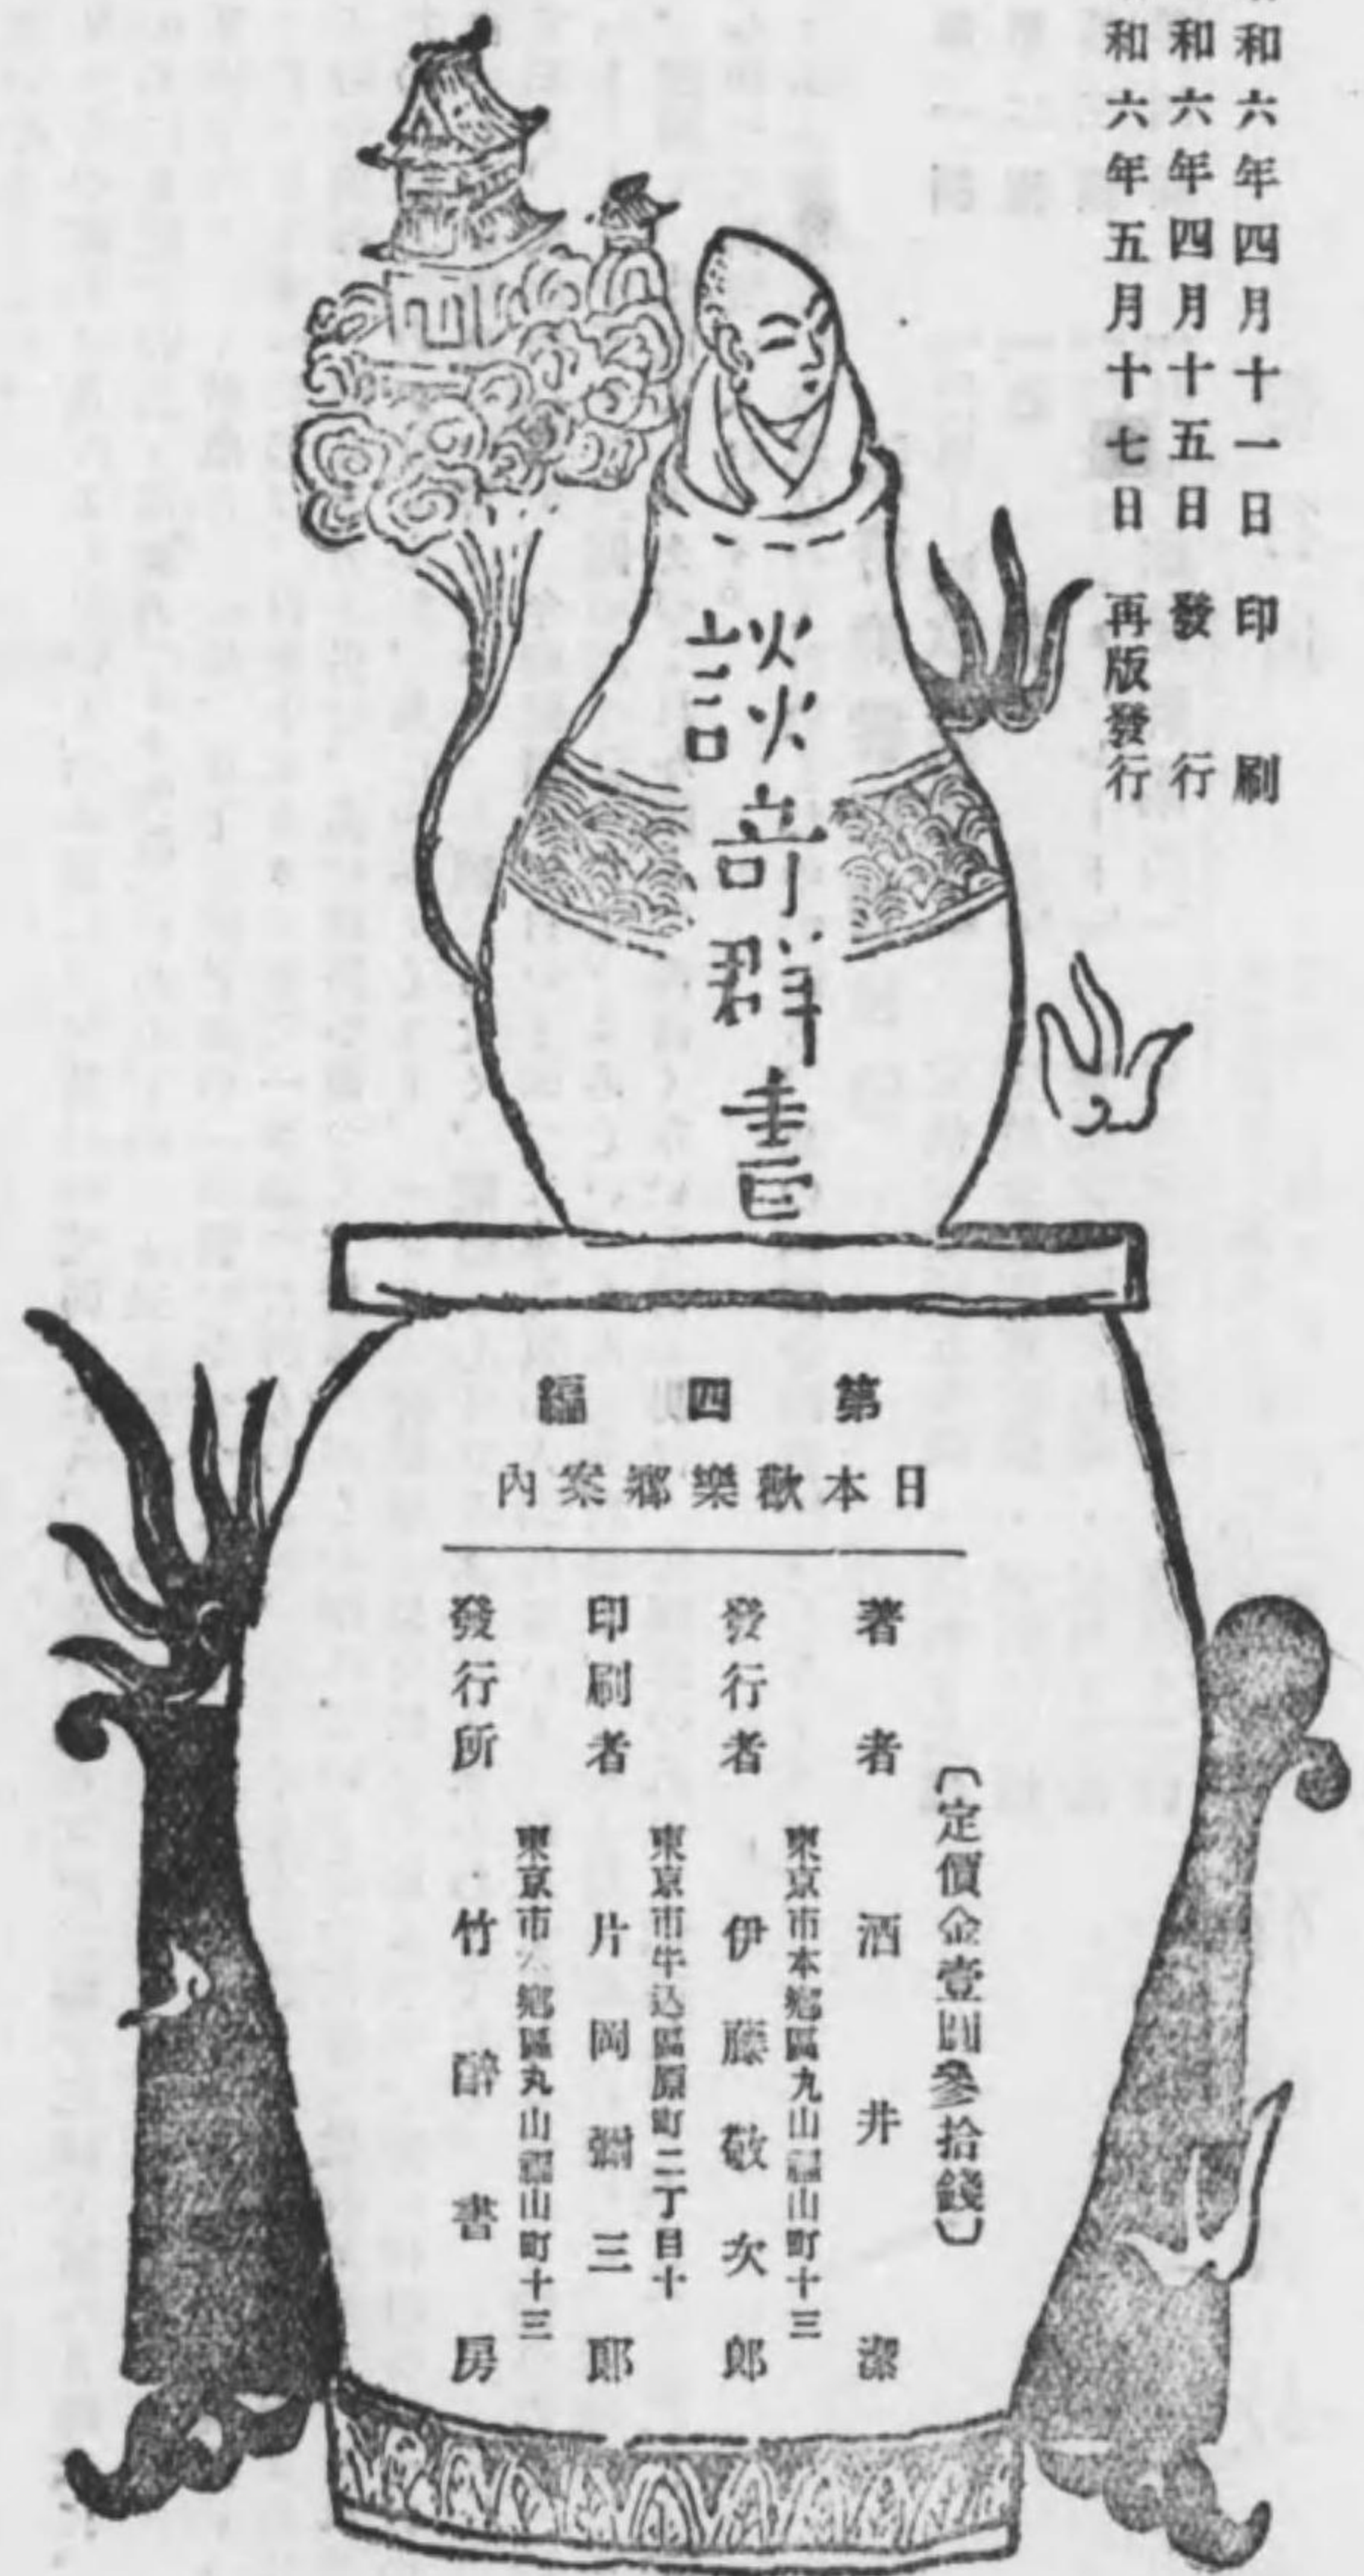 和六年四月十一日 印刷
和六年四月十五日 發行
和六年五月十七日 再版發行
談奇群書
第四編
日本歡樂鄕案內
〔定價金壹圓參拾錢〕
著者 酒井潔
東京市本鄕區丸山福山町十三
發行者 伊藤敬次郎
東京市牛込區原町二丁目十
印刷者 片岡彌三郎
東京市本鄕區丸山福山町十三
發行所 竹醉書房